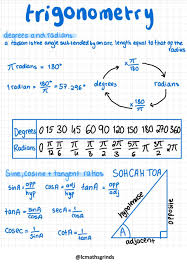 trigonometry
degrees and radians:
a radian is the angle subtended by an arc length equal to that of the radius
π radians = 180°
1 radian = 180°/π = 57.296°
× π/180
degrees radians
× 180/π
Degrees 0 15 30 45 60 90 120 135 150 180 270 360
Radians 0 π/12 π/6 π/4 π/3 π/2 2π/3 3π/4 5π/6 π 3π/2 2π
Sine, cosine + tangent ratios SOHCAHTOA
sinA = opp/hyp cosA = adj/hyp tanA = opp/adj
secA = 1/cosA
cosecA = 1/sinA cotA = 1/tanA
hypotenuse
opposite
A
adjacent
@lcmathsgrinds